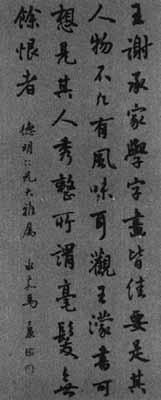 王謝承家學字畫皆佳要是其
人物不凡有風味耳觀王濛書可
想見其人秀整所謂毫髮無
餘恨者
德明仁兄大雅屬 馬